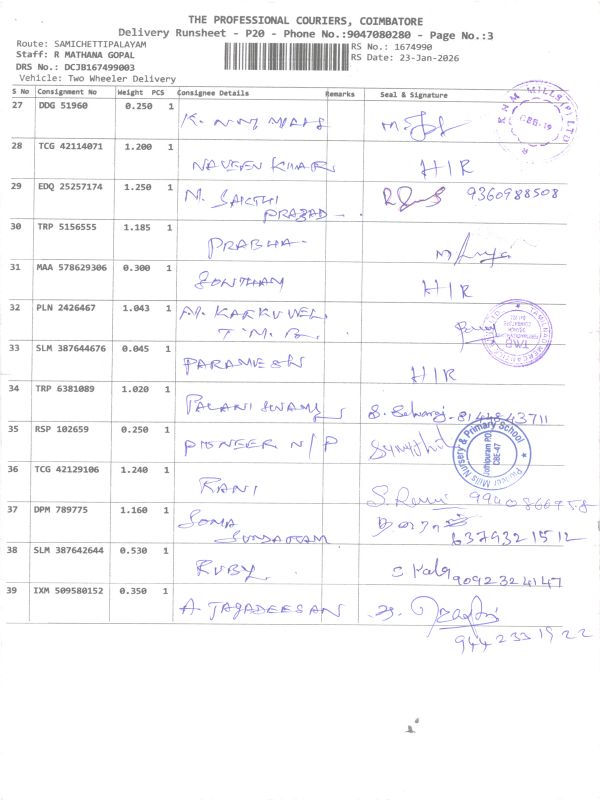 THE PROFESSIONAL COURIERS, COIMBATORE
Delivery Runsheet - P20 - Phone No.:9047080280 - Page No.:3
Route: SAMICHETTIPALAYAM
RS No.: 1674990
Staff: R MATHANA GOPAL
RS Date: 23-Jan-2026
DRS No.: DCJB167499003
Vehicle: Two Wheeler Delivery
S No Consignment No Weight PCS Consignee Details Remarks Seal & Signature
27 DDG 51960 0.250 1
K. N M Mills
K N M MILLS (P) LTD
28 TCG 42114071 1.200 1
NAVEEN KUMAR H/R
29 EDQ 25257174 1.250 1
M. SAKTHI 9360988508
PRASAD
30 TRP 5156555 1.185 1
PRABHA
31 MAA 578629306 0.300 1
H/R
32 PLN 2426467 1.043 1
M. KARKUVEL
T.M.B.
TMB
33 SLM 387644676 0.045 1
PARAMESH
H/R
34 TRP 6381089 1.020 1
PALANI SWAMY S. Selvaraj - 8144843711
35 RSP 102659 0.250 1
PIONEER N/P
Pioneer Mills Nursery & Primary School
Jothipuram PO
CBE-47
36 TCG 42129106 1.240 1
RANI
9940866758
37 DPM 789775 1.160 1
SOMA
SUNDARAM 6379321512
38 SLM 387642644 0.530 1
RUBY C Kala 9092324147
39 IXM 509580152 0.350 1
A. JAGADEESAN
9442331922